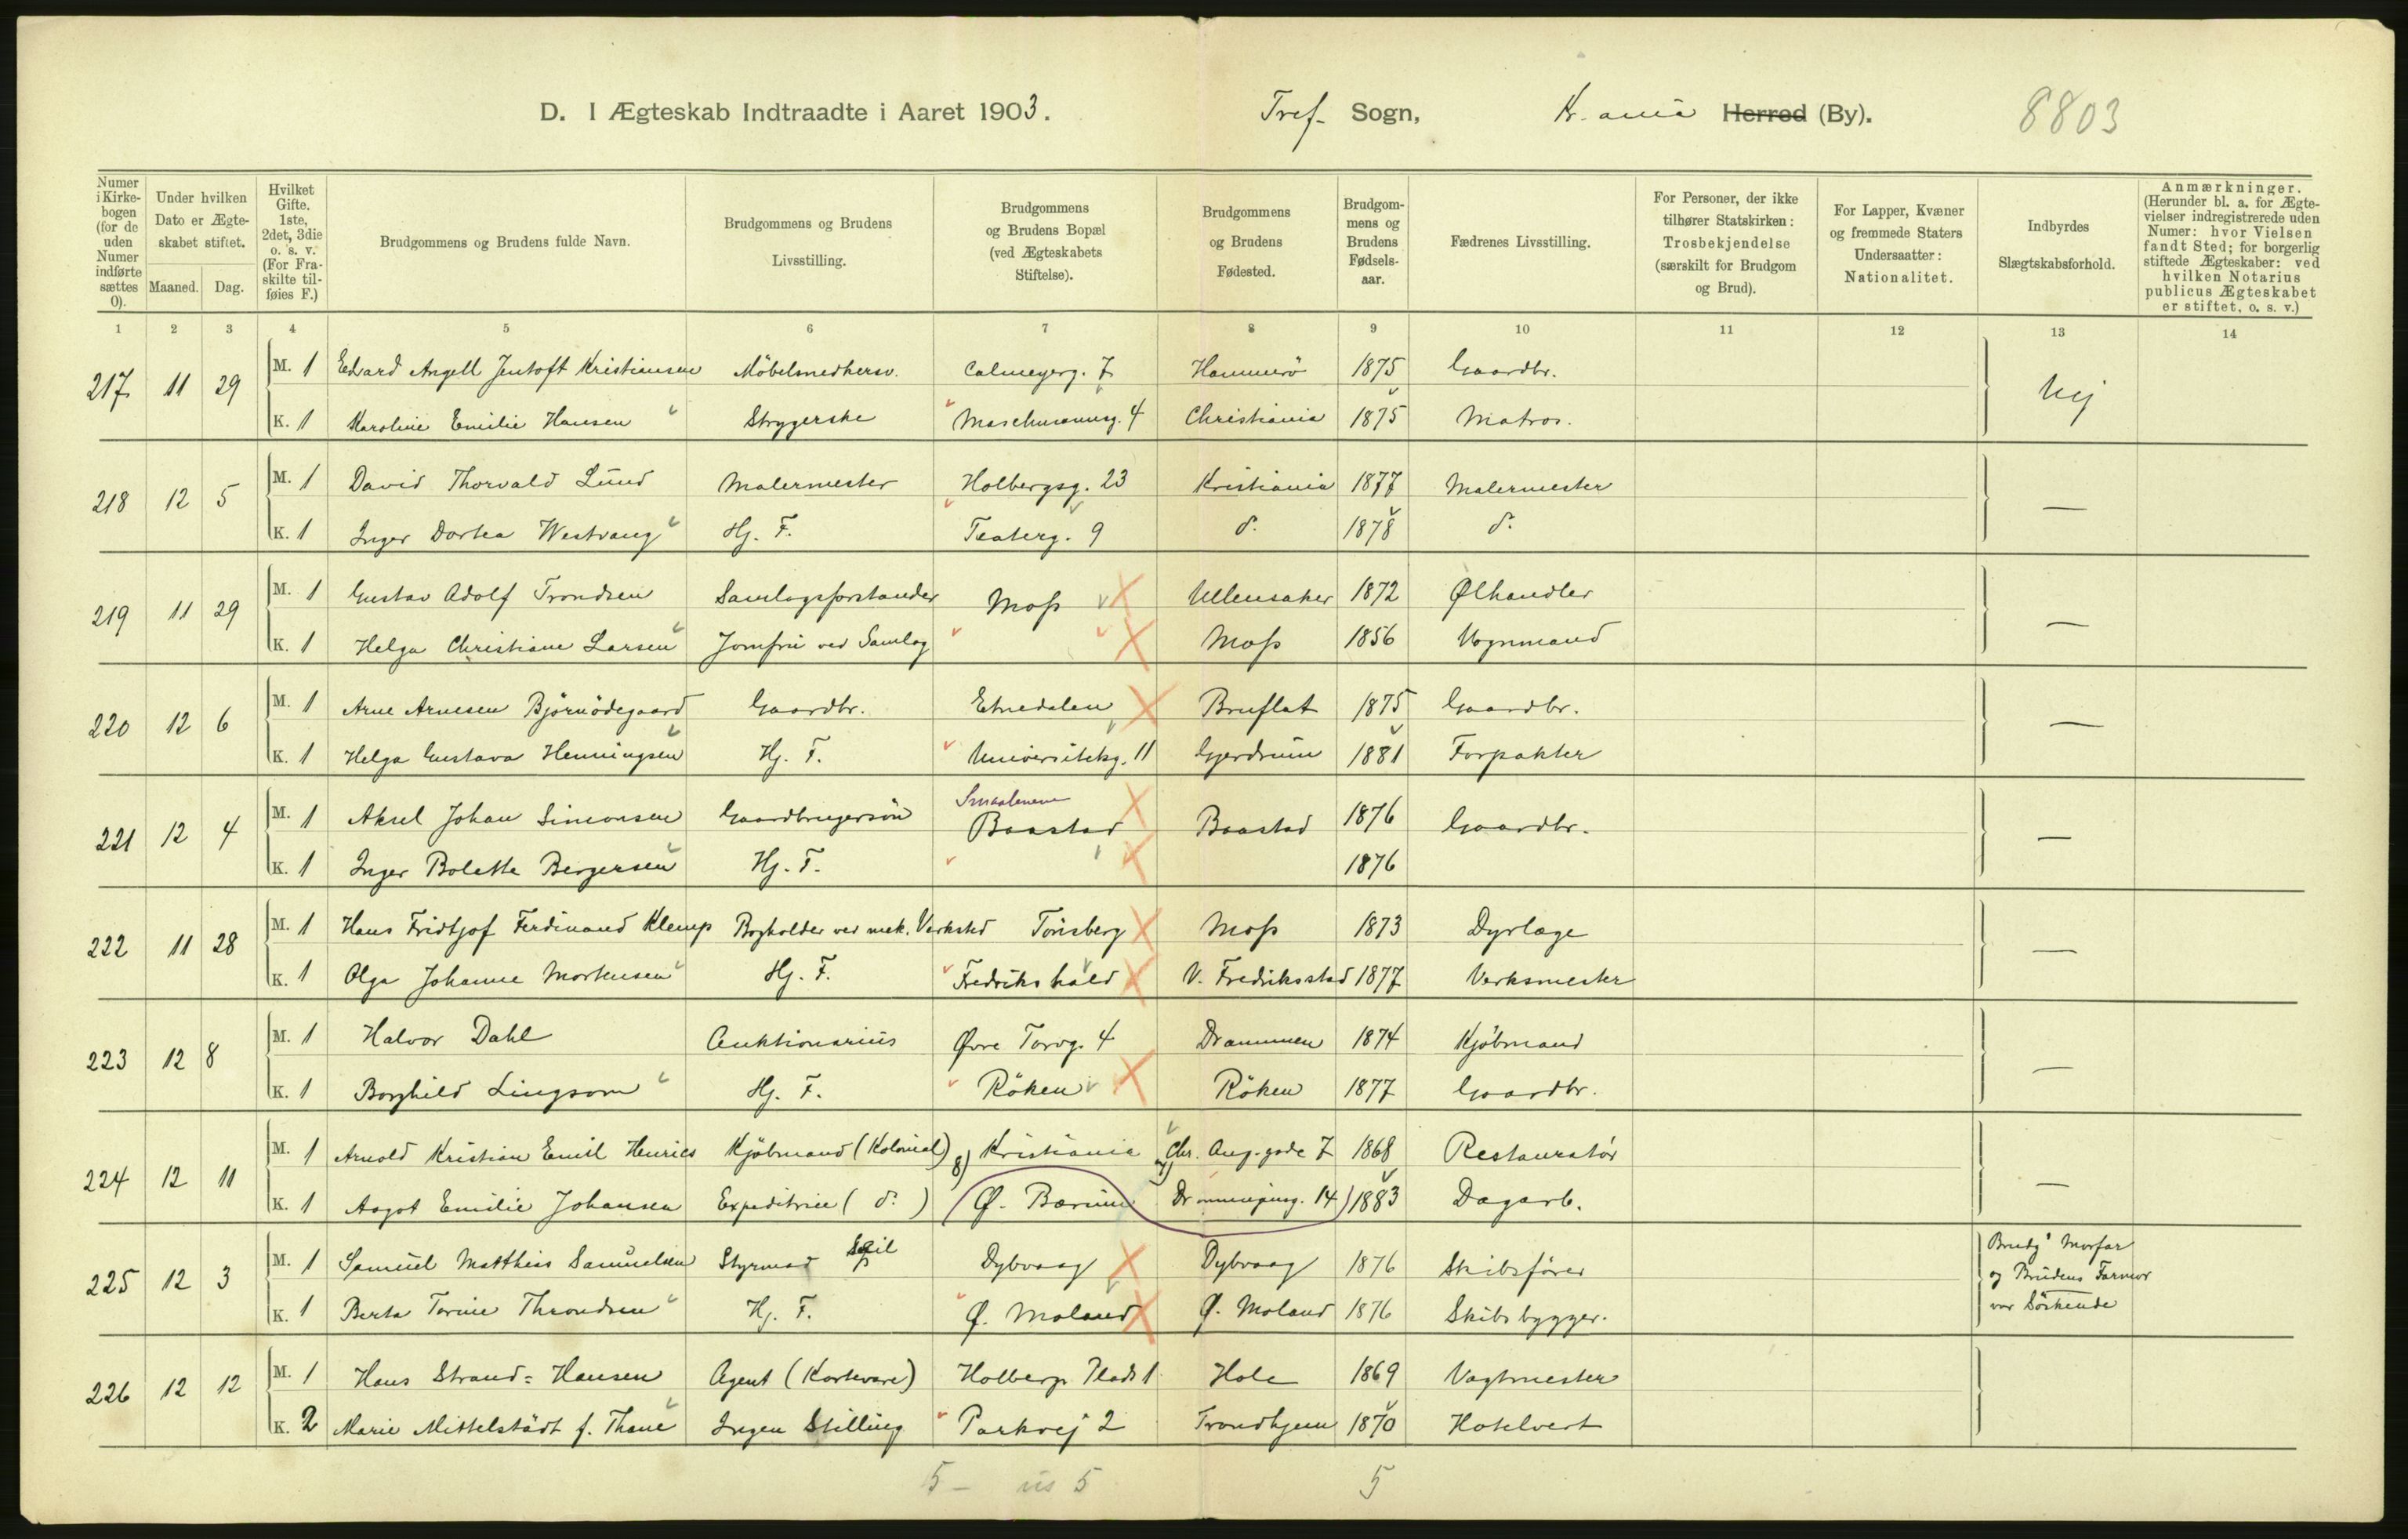 D. I Ægteskab Indtraadte i Aaret 1903. Tref. Sogn, Kr. ania Herred (By). 8803
Numer i Kirkebogen (for de uden Numer indførte sættes 0). Under hvilken Dato er Ægteskabet stiftet. Maaned. Dag. Hvilket Gifte. 1ste, 2det, 3die o. s. v. (For Fraskilte tilføies F.) Brudgommens og Brudens fulde Navn. Brudgommens og Brudens Livsstilling. Brudgommens og Brudens Bopæl (ved Ægteskabets Stiftelse). Brudgommens og Brudens Fødested. Brudgommens og Brudens Fødselsaar. Fædrenes Livsstilling. For Personer, der ikke tilhører Statskirken: Trosbekjendelse (særskilt for Brudgom og Brud). For Lapper, Kvæner og fremmede Staters Undersaatter: Nationalitet. Indbyrdes Slægtskabsforhold. Anmærkninger. (Herunder bl. a. for Ægtevielser indregistrerede uden Numer: hvor Vielsen fandt Sted; for borgerlig stiftede Ægteskaber: ved hvilken Notarius publicus Ægteskabet er stiftet, o. s. v.)
1 2 3 4 5 6 7 8 9 10 11 12 13 14
217 11 29 M. 1 Edvard Angell Jentoft Kristiansen Möbelsnedkersv. Calmeyerg. 7 Hammerö 1875 Gaardbr. Nej
K. 1 Karoline Emilie Hansen Strygerske 4 Christiania 1875 Matros.
218 12 5 M. 1 David Thorvald Lund Malermester Holbergsg. 23 Kristiania 1877 Malermester —
K. 1 Inger Dortea Westvang Hj. F. Teaterg. 9 d. 1878 d.
219 11 29 M. 1 Gustav Adolf Trondsen Samlagsforstander Moss Ullensaker 1872 Ølhandler —
K. 1 Helga Christiane Larsen Jomfru ved Samlag " Moss 1856 Vognmand
220 12 6 M. 1 Arne Arnesen Björnödegaard Gaardbr. Etnedalen Bruflat 1875 Gaardbr. —
K. 1 Helga Gustava Henningsen Hj. F. Universitetsg. 11 Gjerdrum 1881 Forpakter
221 12 4 M. 1 Aksel Johan Simonsen Gaardbrugersön Smaalenene Baastad Baastad 1876 Gaardbr. —
K. 1 Inger Bolette Bergersen Hj. F. 1876
222 11 28 M. 1 Hans Fridtjof Ferdinand Klemp Bogholder ved mek. Verksted Tönsberg Moss 1873 Dyrlæge —
K. 1 Olga Johanne Mortensen Hj. F. Fredrikshald V. Fredriksstad 1877 Verksmester
223 12 8 M. 1 Halvor Dahl Auktionarius Øvre Torvg. 4 Drammen 1874 Kjöbmand —
K. 1 Borghild Lingsom Hj. F. Röken Röken 1877 Gaardbr.
224 12 11 M. 1 Arnold Kristian Emil Henrics Kjöbmand (Kolonial) 8) Kristiania Chr. Aug. gade 7 1868 Restauratör —
K. 1 Aagot Emilie Johansen Expeditrice (d.) (Ø. Bærum Dronningensg. 14) 1883 Dagarb.
225 12 3 M. 1 Samuel Matthias Samuelsen Styrmand Seil Dybvaag Dybvaag 1876 Skibsförer Brudg' Morfar
og Brudens Farmor
K. 1 Berta Torine Throndsen Hj. F. Ø. Moland Ø. Moland 1876 Skibsbygger. var Söskende
226 12 12 M. 1 Hans Strand-Hansen Agent (Kortevare) Holbergs Plads 1 Hole 1869 Vagtmester
K. 2 Marie Mittelstädt f. Thane Ingen Stilling Parkvej 2 Trondhjem 1870 Hotelvert
5 – 5 5